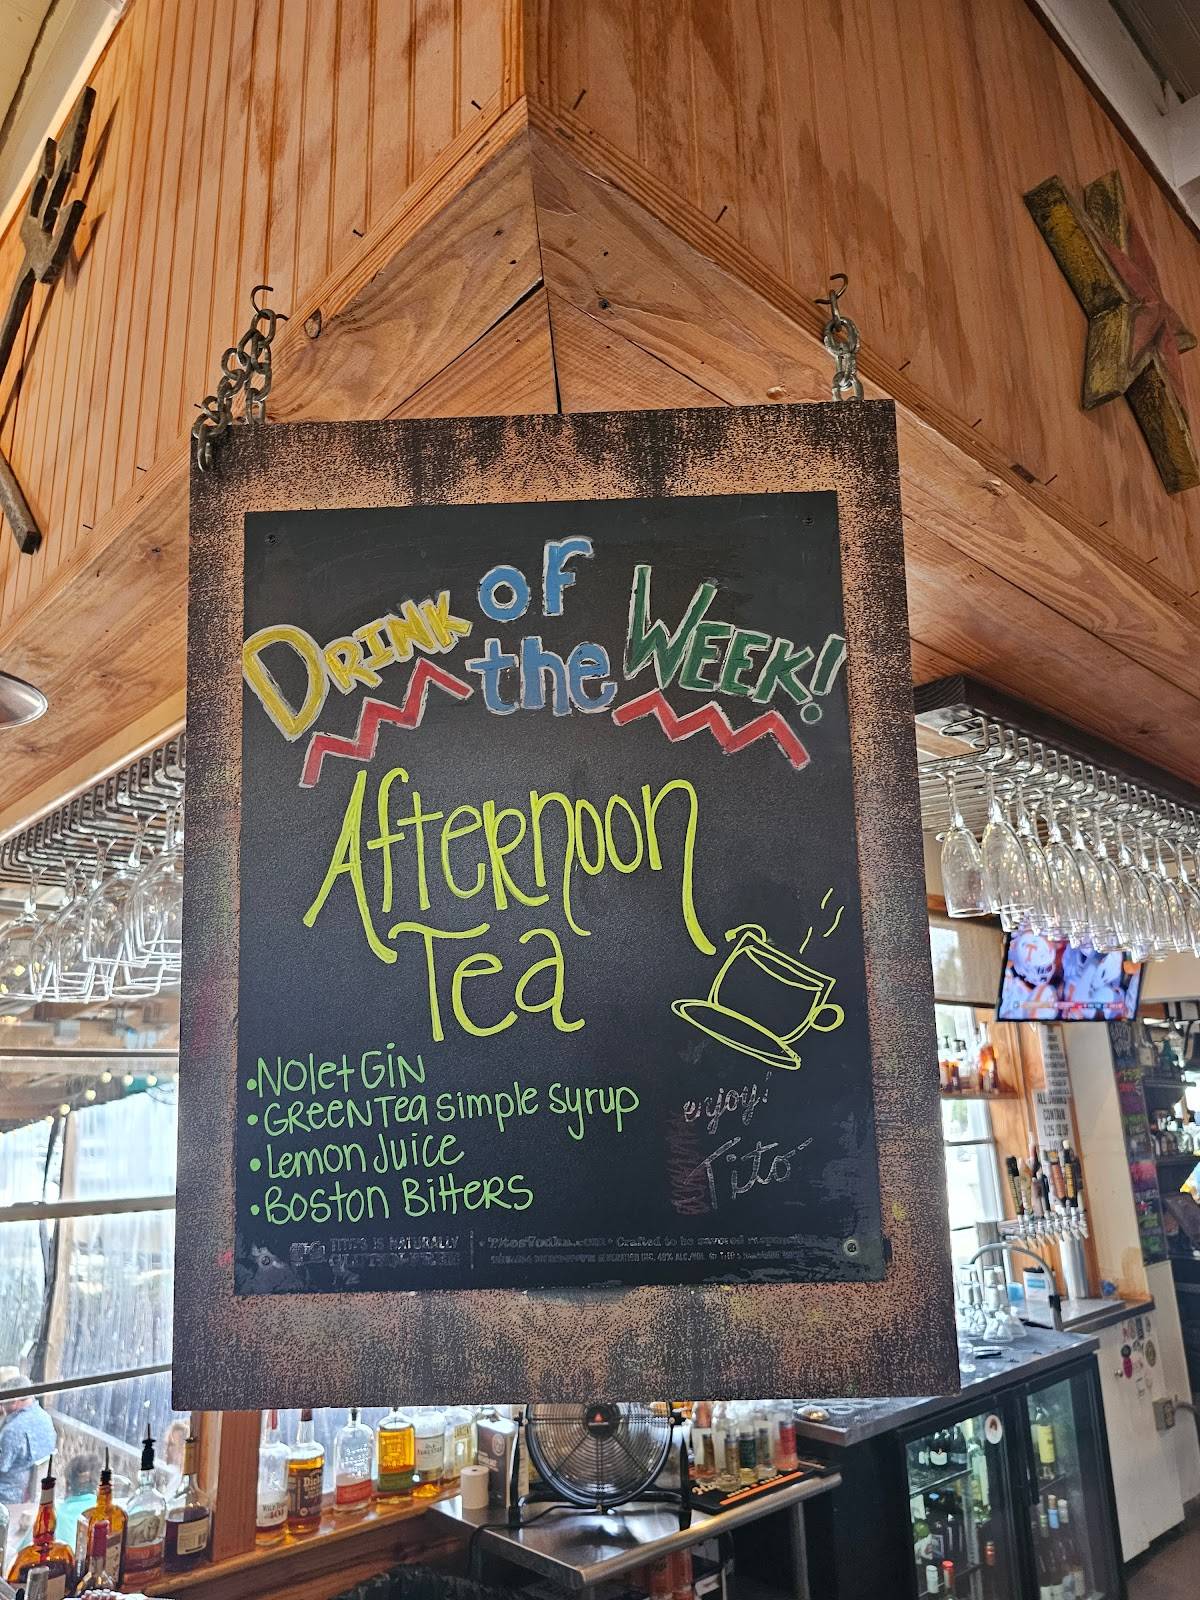 Drink of the Week!
Afternoon
Tea
• Nolet Gin
• Green Tea Simple Syrup
• Lemon Juice
• Boston Bitters
enjoy!
Tito
TITO'S IS NATURALLY
• TitosVodka.com • Crafted to be savored responsibly
T
ALL
CONTAIN
1.25 OZ OF